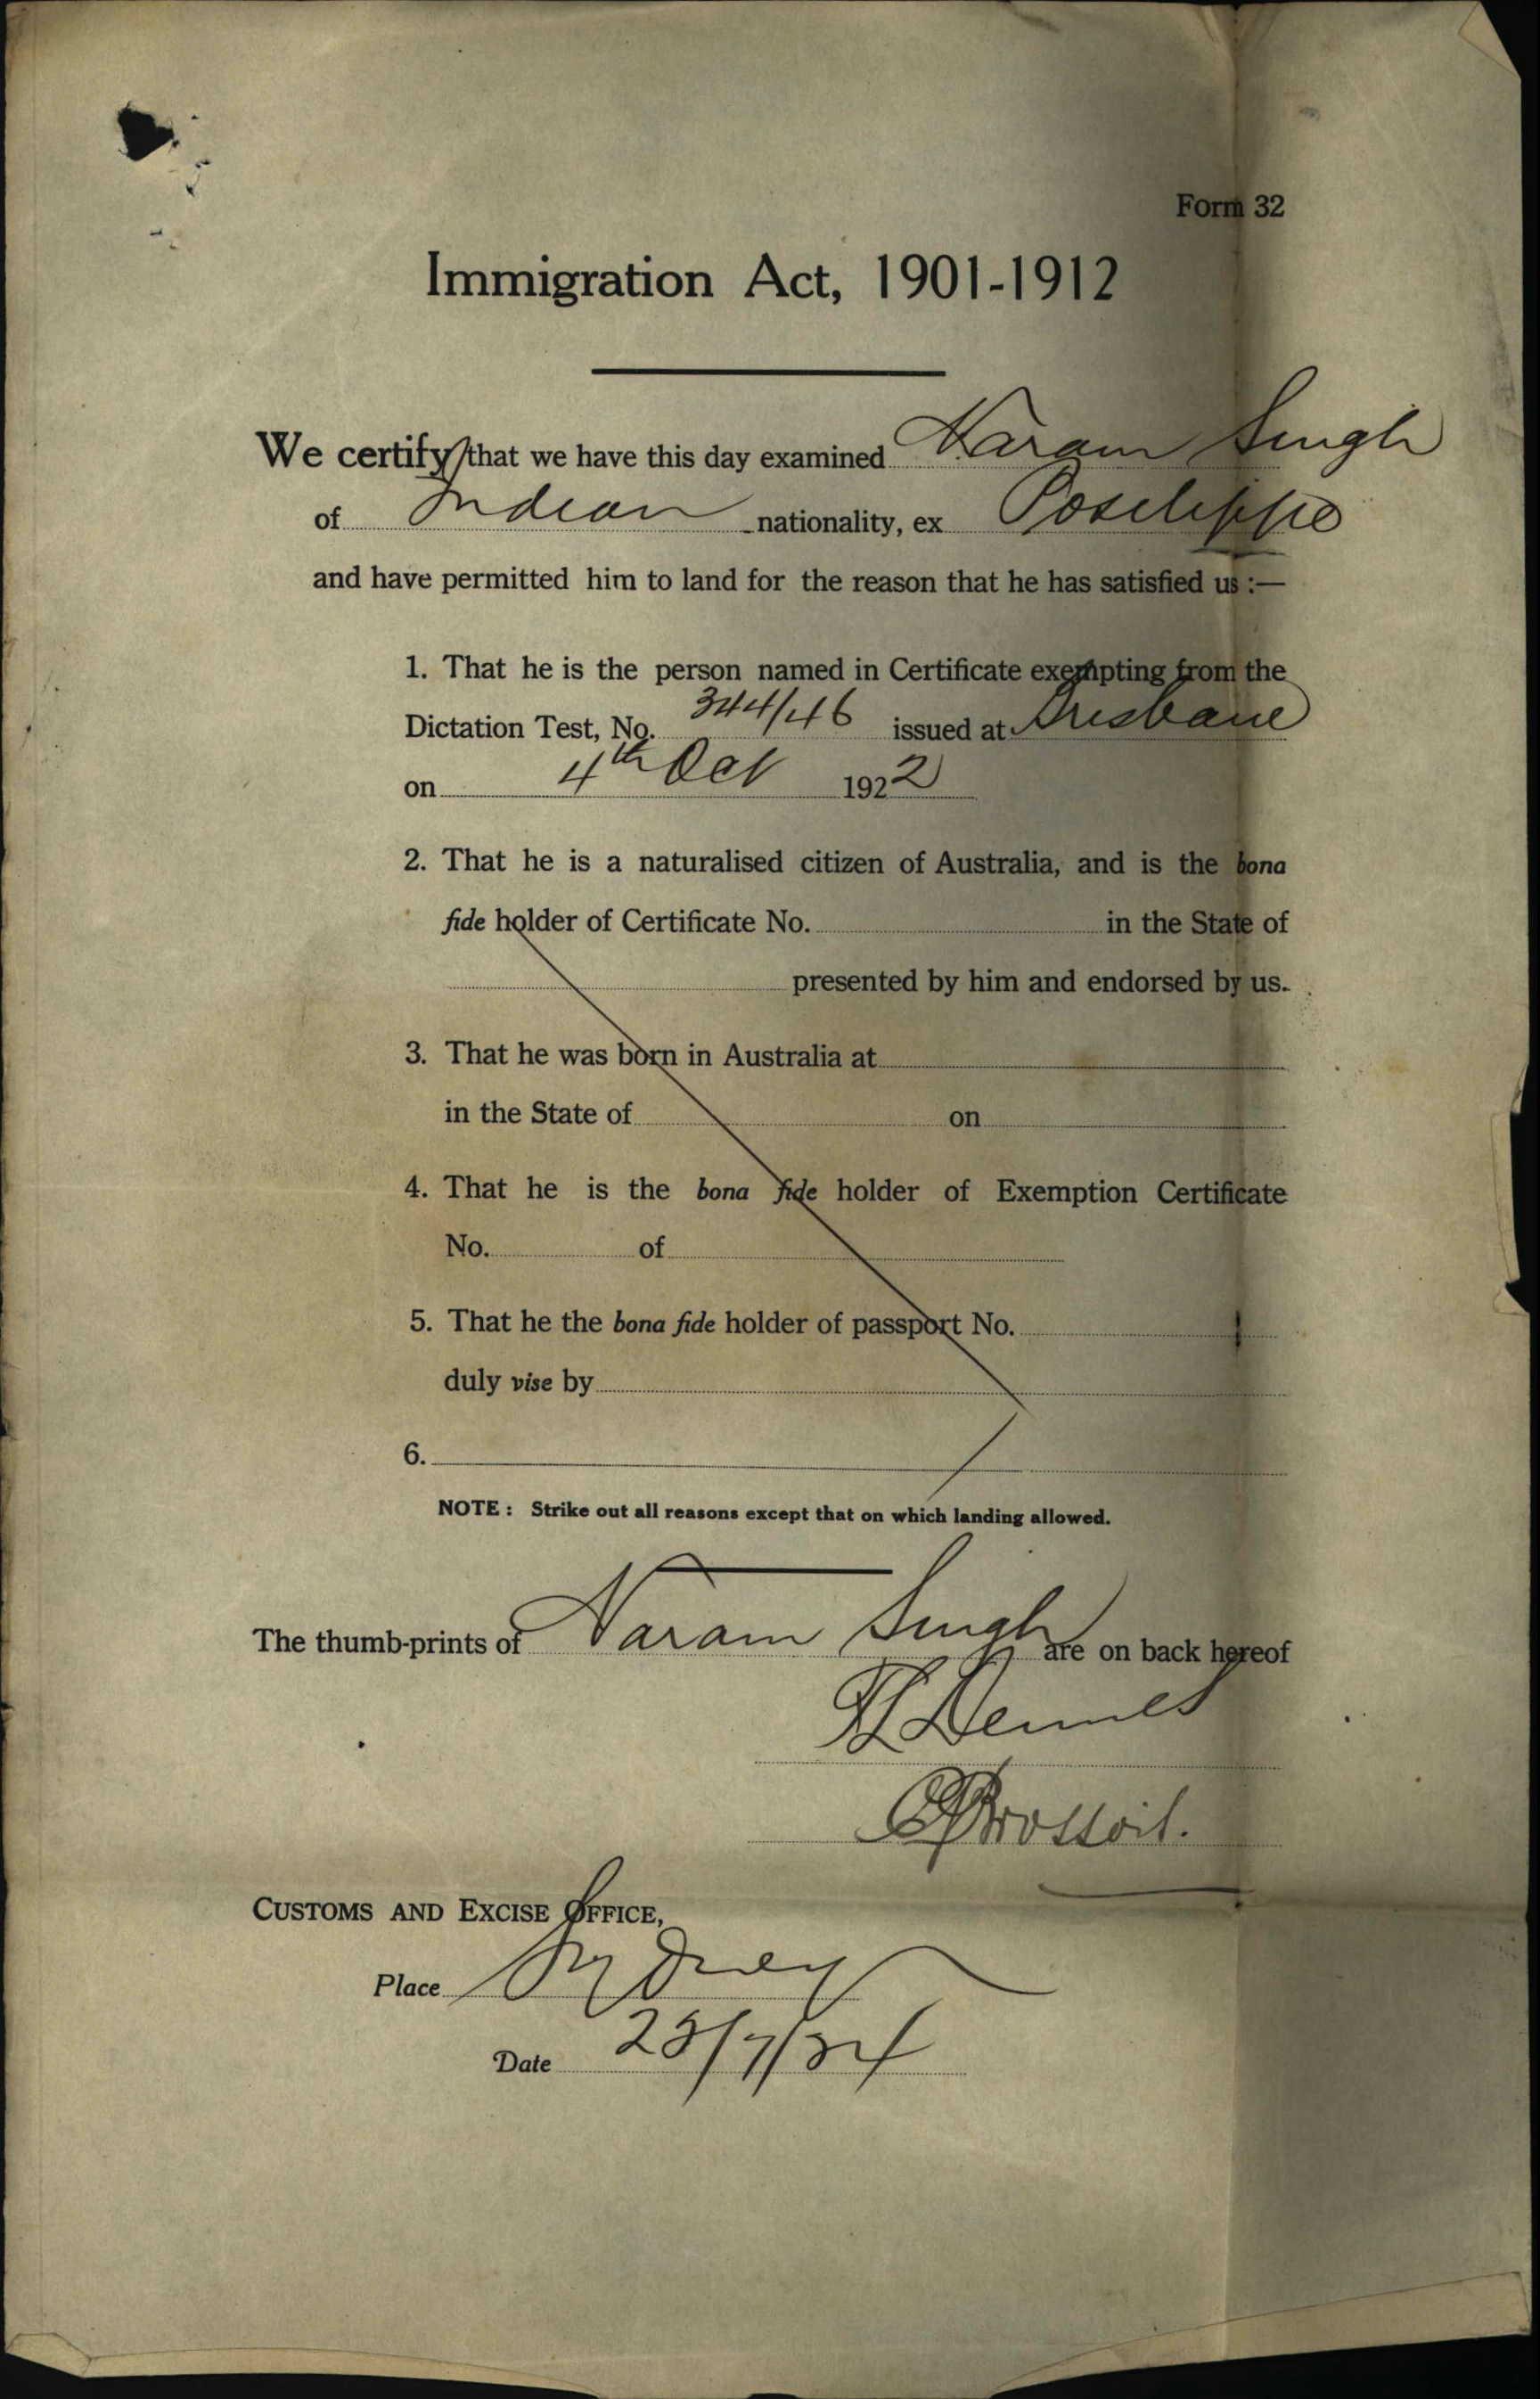 Form 32
Immigration Act, 1901-1912
We certify that we have this day examined Naram Singh
of Indian nationality, ex
and have permitted him to land for the reason that he has satisfied us :—
1. That he is the person named in Certificate exempting from the
Dictation Test, No. 344/46 issued at Brisbane
on 4th Oct 1922
2. That he is a naturalised citizen of Australia, and is the bona
fide holder of Certificate No. in the State of
presented by him and endorsed by us.
3. That he was born in Australia at
in the State of on
4. That he is the bona fide holder of Exemption Certificate
No. of
5. That he the bona fide holder of passport No.
duly vise by
6.
NOTE : Strike out all reasons except that on which landing allowed.
The thumb-prints of Naram Singh are on back hereof
CUSTOMS AND EXCISE OFFICE,
Place Sydney
Date